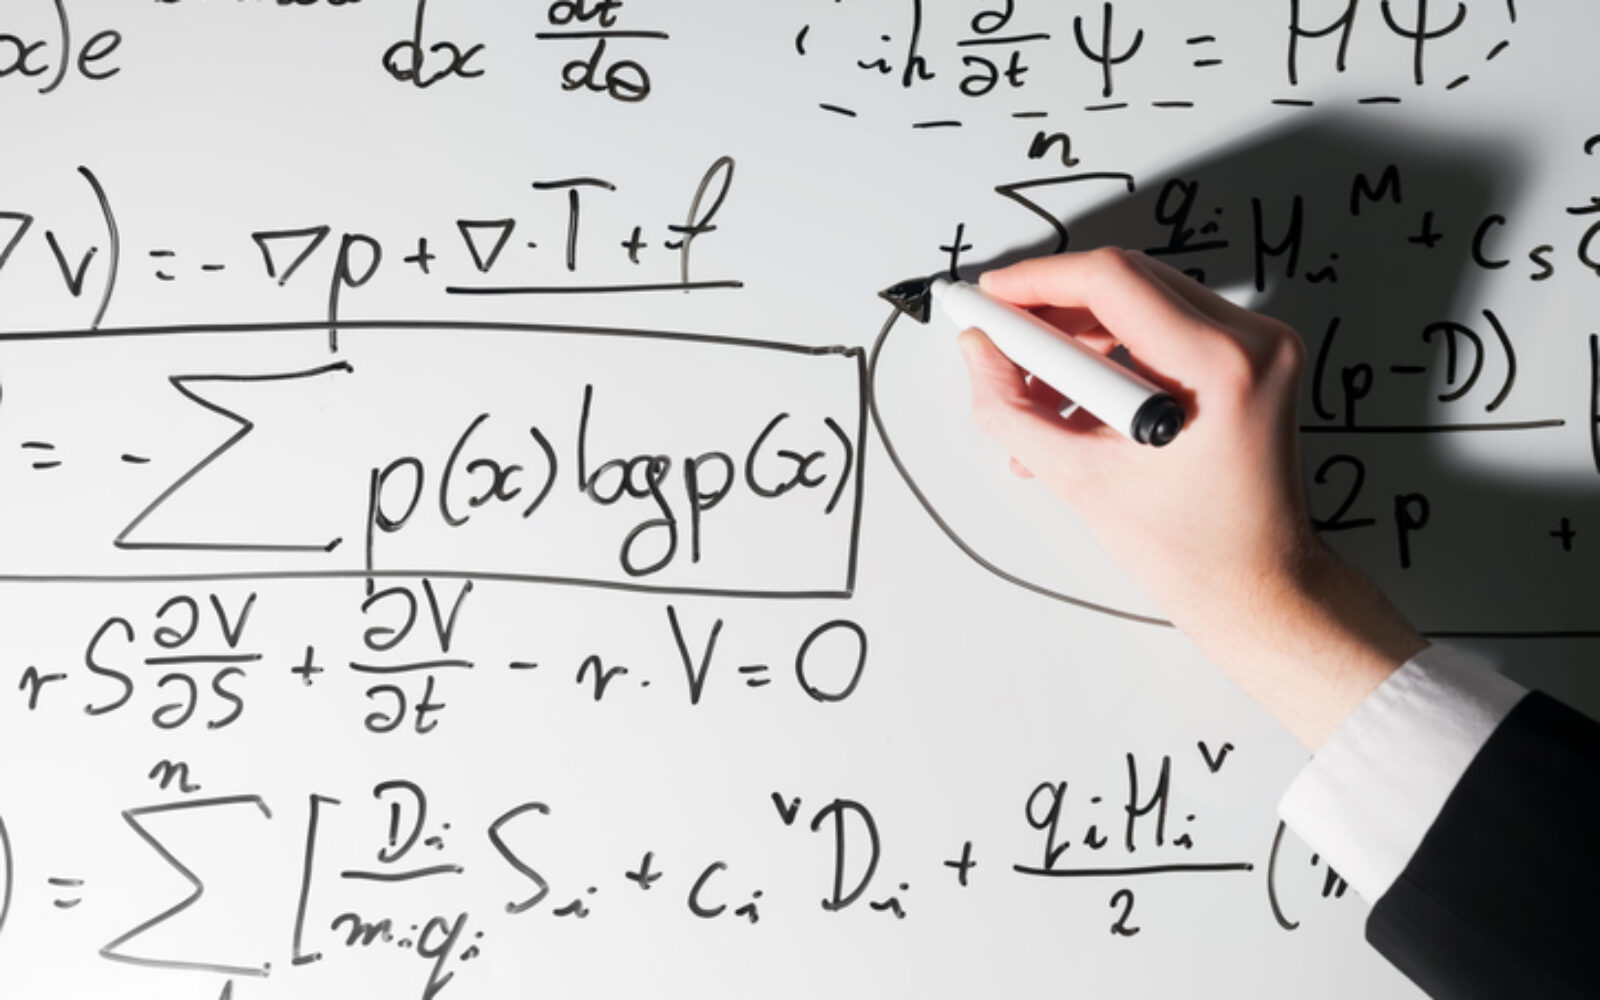 x)e dx dt/dθ iħ ∂/∂t Ψ = HΨ
∇v) = - ∇p + ∇·T + f
+ n ∑ qᵢ Hᵢ ᴹ + c s
(p-D)
= - ∑ p(x) log p(x)
2p +
rS ∂V/∂S + ∂V/∂t - r. V = 0
) = n ∑ [ Dᵢ/mᵢqᵢ Sᵢ + cᵢ ᵛDᵢ + qᵢHᵢᵛ/2 (